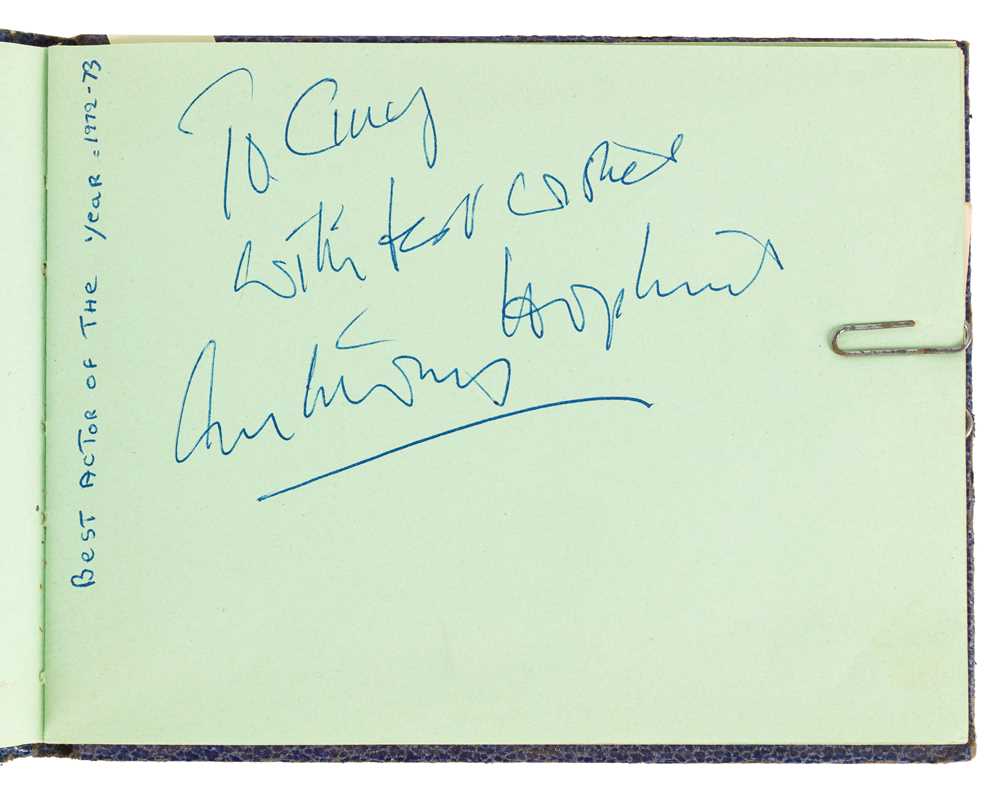 To Cincy
with best wishes
Anthony Hopkins
BEST ACTOR OF THE YEAR = 1972-73